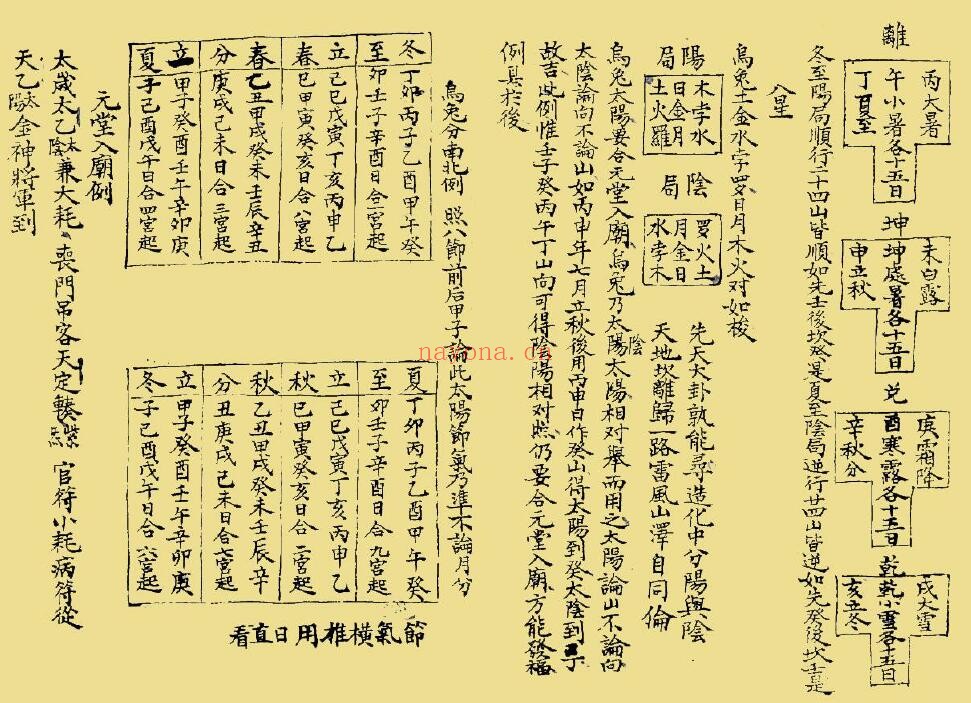 離
丙大暑
午小暑各十五日
丁夏至
坤
未白露
坤處暑各十五日
申立秋
兌
庚霜降
酉寒露各十五日
辛秋分
乾
戌大雪
乾小雪各十五日
亥立冬
冬至陽局順行二十四山皆順如先壬後坎癸是夏至陰局逆行廿四山皆逆如先癸後坎壬是
八星
烏兔土金水孛羅日月木火对如梭
陽局
木孛水
日金月
土火羅
陰局
罗火土
月金日
水孛木
先天大卦孰能尋造化中分陽與陰
天地坎離歸一路雷風山澤自同倫
烏兔太陽要合元堂入廟烏兔乃太陽太陰相对舉而用之太陽論山不論向
太陰論向不論山如丙申年七月立秋後用丙申日作癸山得太陽到癸太陰到丁
故吉此例惟壬子癸丙午丁山向可得陰陽相对照仍要合元堂入廟方能發福
例具於後
烏兔分南北例 照八節前后甲子論此太陽節氣乃準不論月分
冬至
丁卯丙子乙酉甲午癸
卯壬子辛酉日合一宮起
立春
己巳戊寅丁亥丙申乙
巳甲寅癸亥日合八宮起
春分
乙丑甲戌癸未壬辰辛丑
庚戌己未日合三宮起
立夏
甲子癸酉壬午辛卯庚
子己酉戊午日合四宮起
夏至
丁卯丙子乙酉甲午癸
卯壬子辛酉日合九宮起
立秋
己巳戊寅丁亥丙申乙
巳甲寅癸亥日合二宮起
秋分
乙丑甲戌癸未壬辰辛
丑庚戌己未日合七宮起
立冬
甲子癸酉壬午辛卯庚
子己酉戊午日合六宮起
節氣橫推用日直看
元堂入廟例
太歲太乙太陰兼大耗喪門吊客天定轃 官符小耗病符從
天乙太陽金神將軍到
nayona.cn